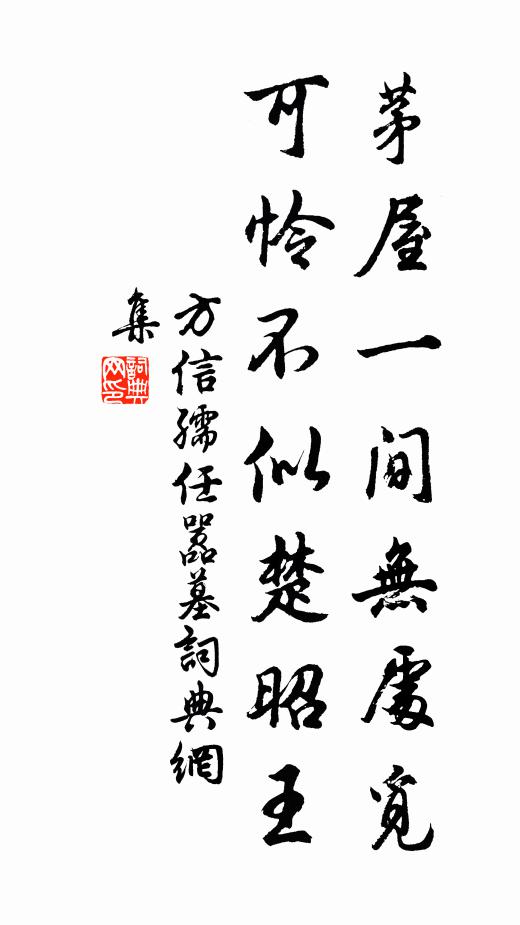 茅屋一間無處覓
可憐不似楚昭王
方信孺任嚣墓詞典網
集
詞典
网印